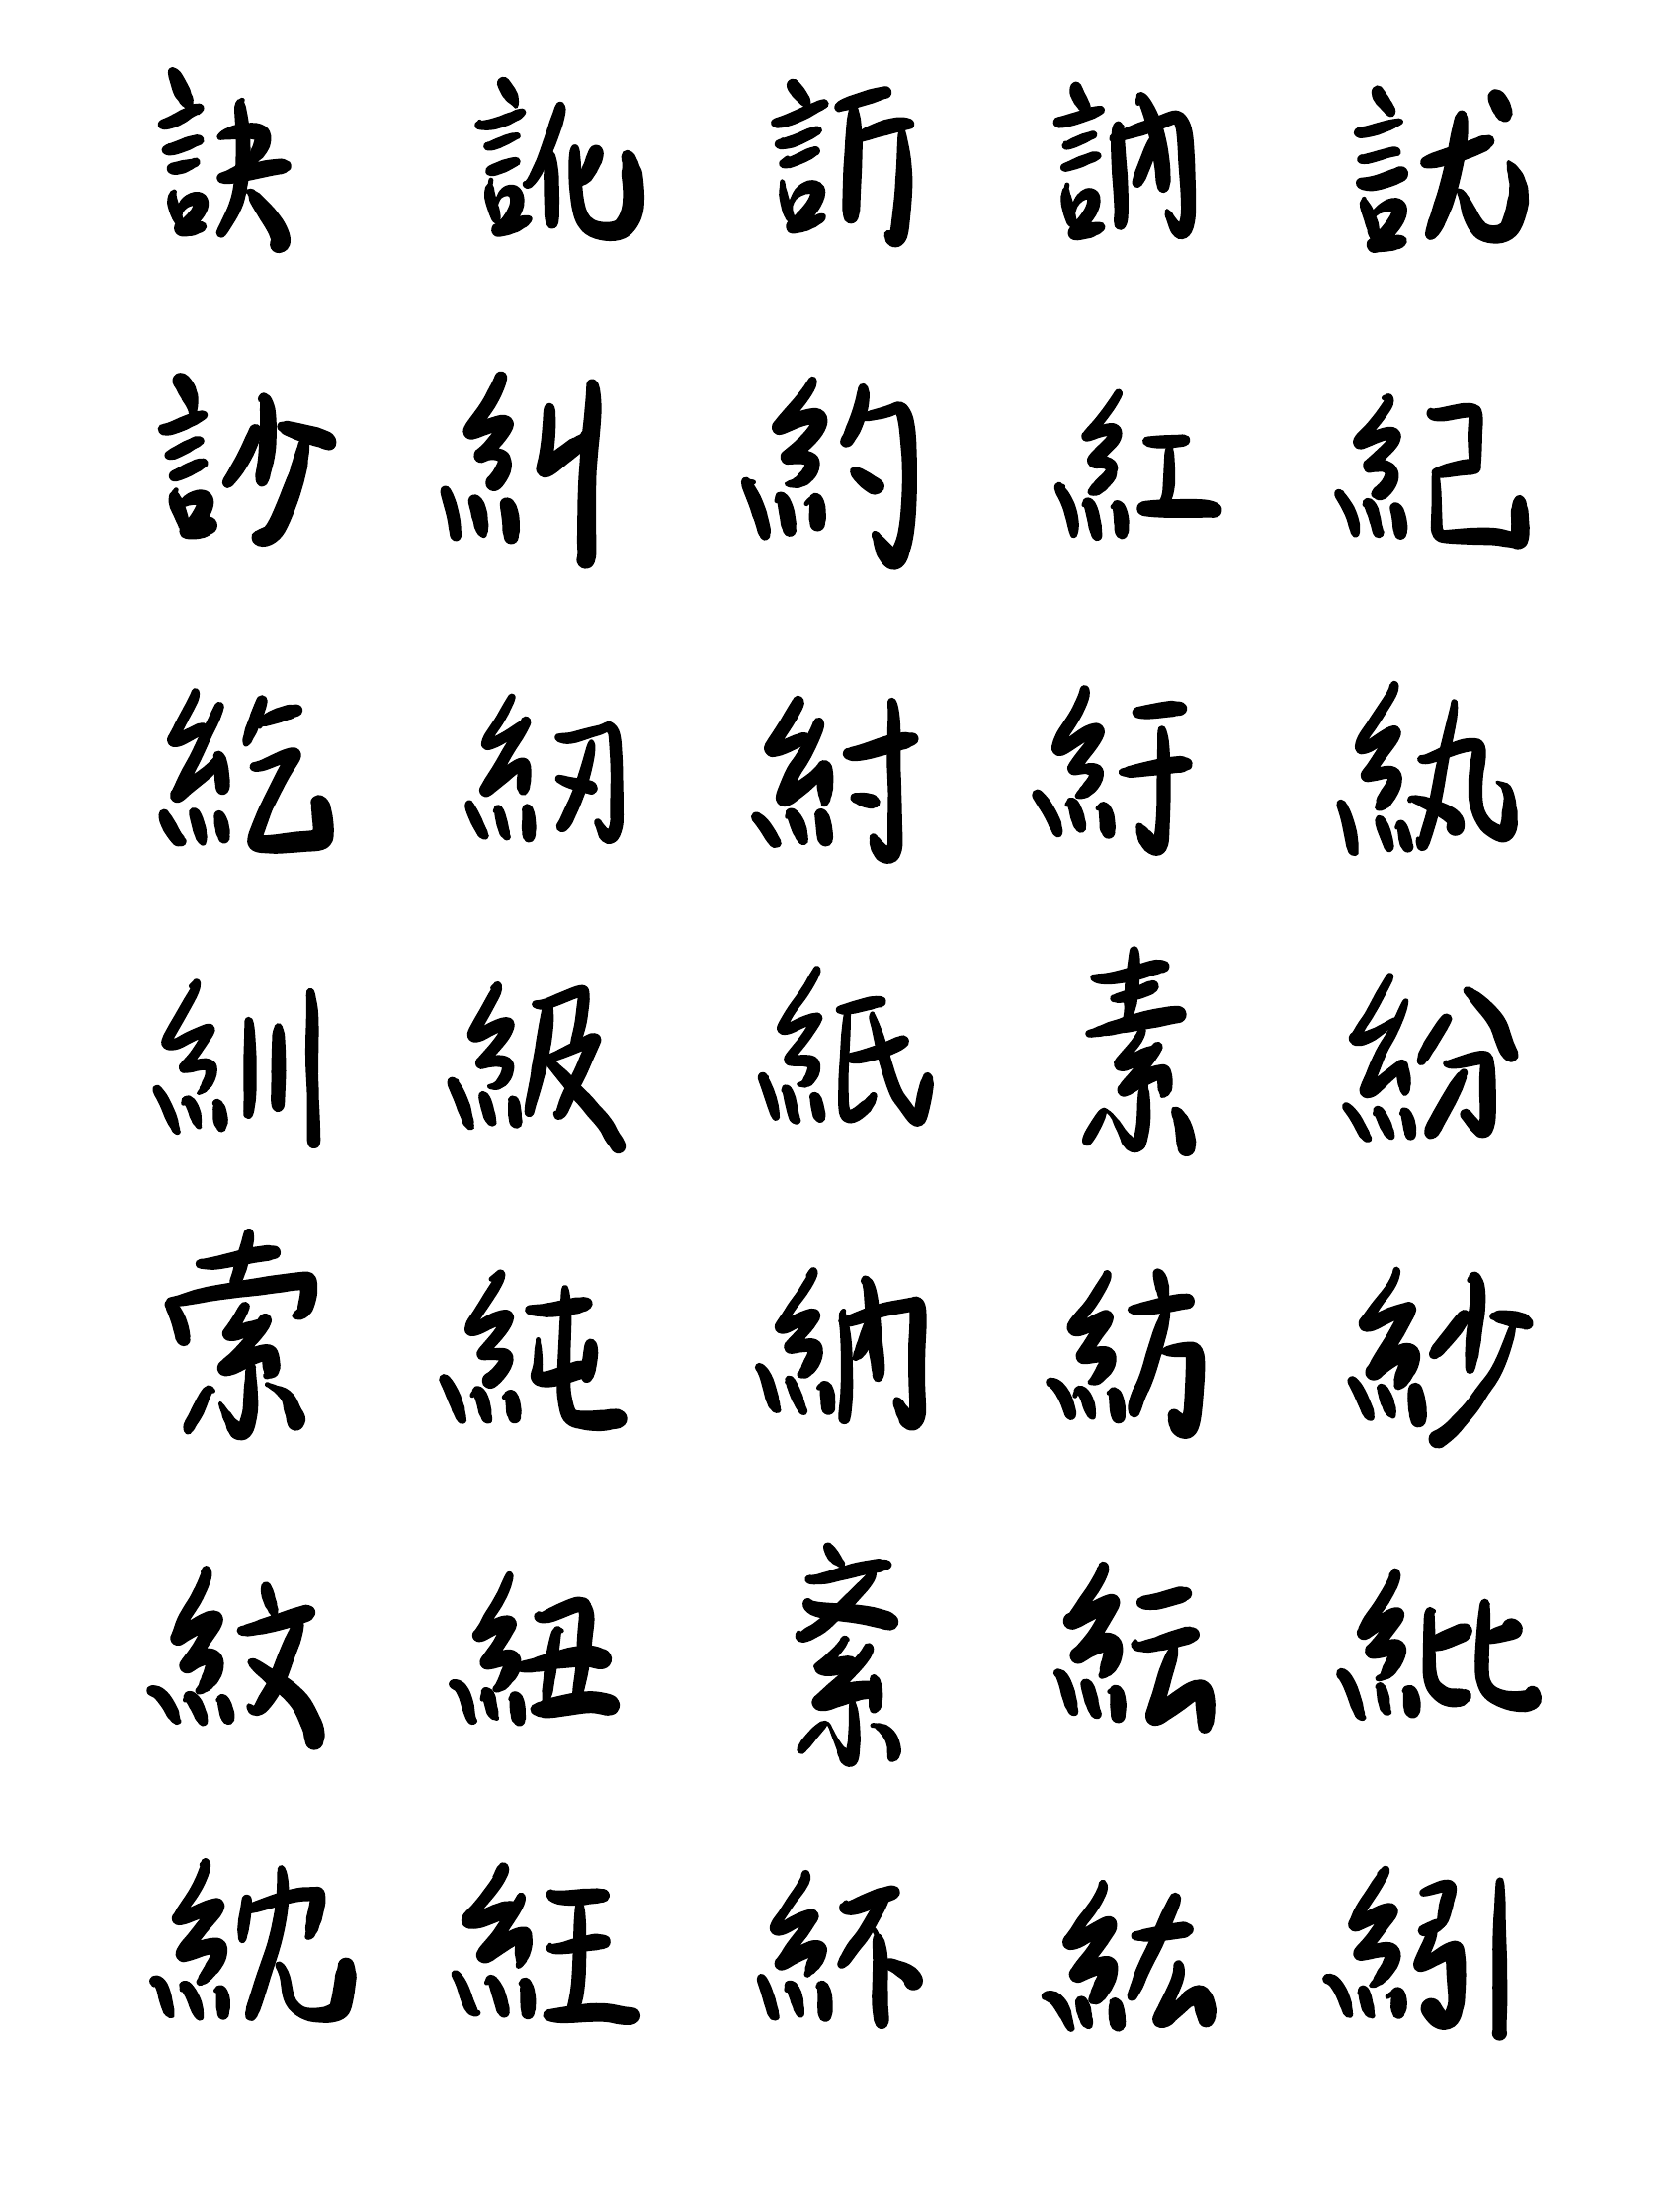 訣 訛 訢 訥 訧
訬 糾 約 紅 紀
紇 紉 紂 紆 紈
紃 級 紙 素 紛
索 純 納 紡 紗
紋 紐 紊 紜 紕
紞 紝 紑 紘 紖